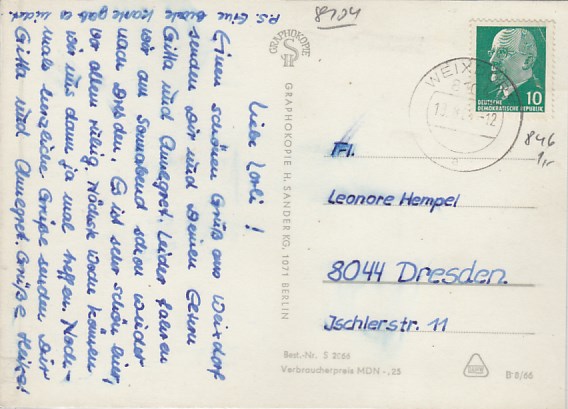 P.S. Eine
karte gab es nicht.
Liebe Lorli!
Einen schönen Gruß aus Weixdorf
senden Dir und Deinen Eltern
Gitta und Annegret. Leider fahren
wir am Sonnabend schon wieder
nach Dresden. Es ist sehr schön hier,
vor allem ruhig. Nächste Woche können
wir uns dann ja mal treffen. Noch-
mals herzliche Grüße senden Dir
Gitta und Annegret. Grüße Heike!
GRAPHOKOPIE
GRAPHOKOPIE H. SANDER KG, 1071 BERLIN
8104
WEIXDORF
DEUTSCHE
DEMOKRATISCHE REPUBLIK
10
846
1,-
Frl.
Leonore Hempel
8044 Dresden
Jschlerstr. 11
Best.-Nr. S 2066
Verbraucherpreis MDN -,25
II 8/66